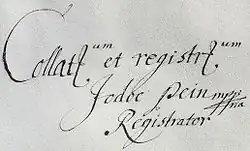 Collat^um et registr^um
Jodoc Pein mppr
Registrator